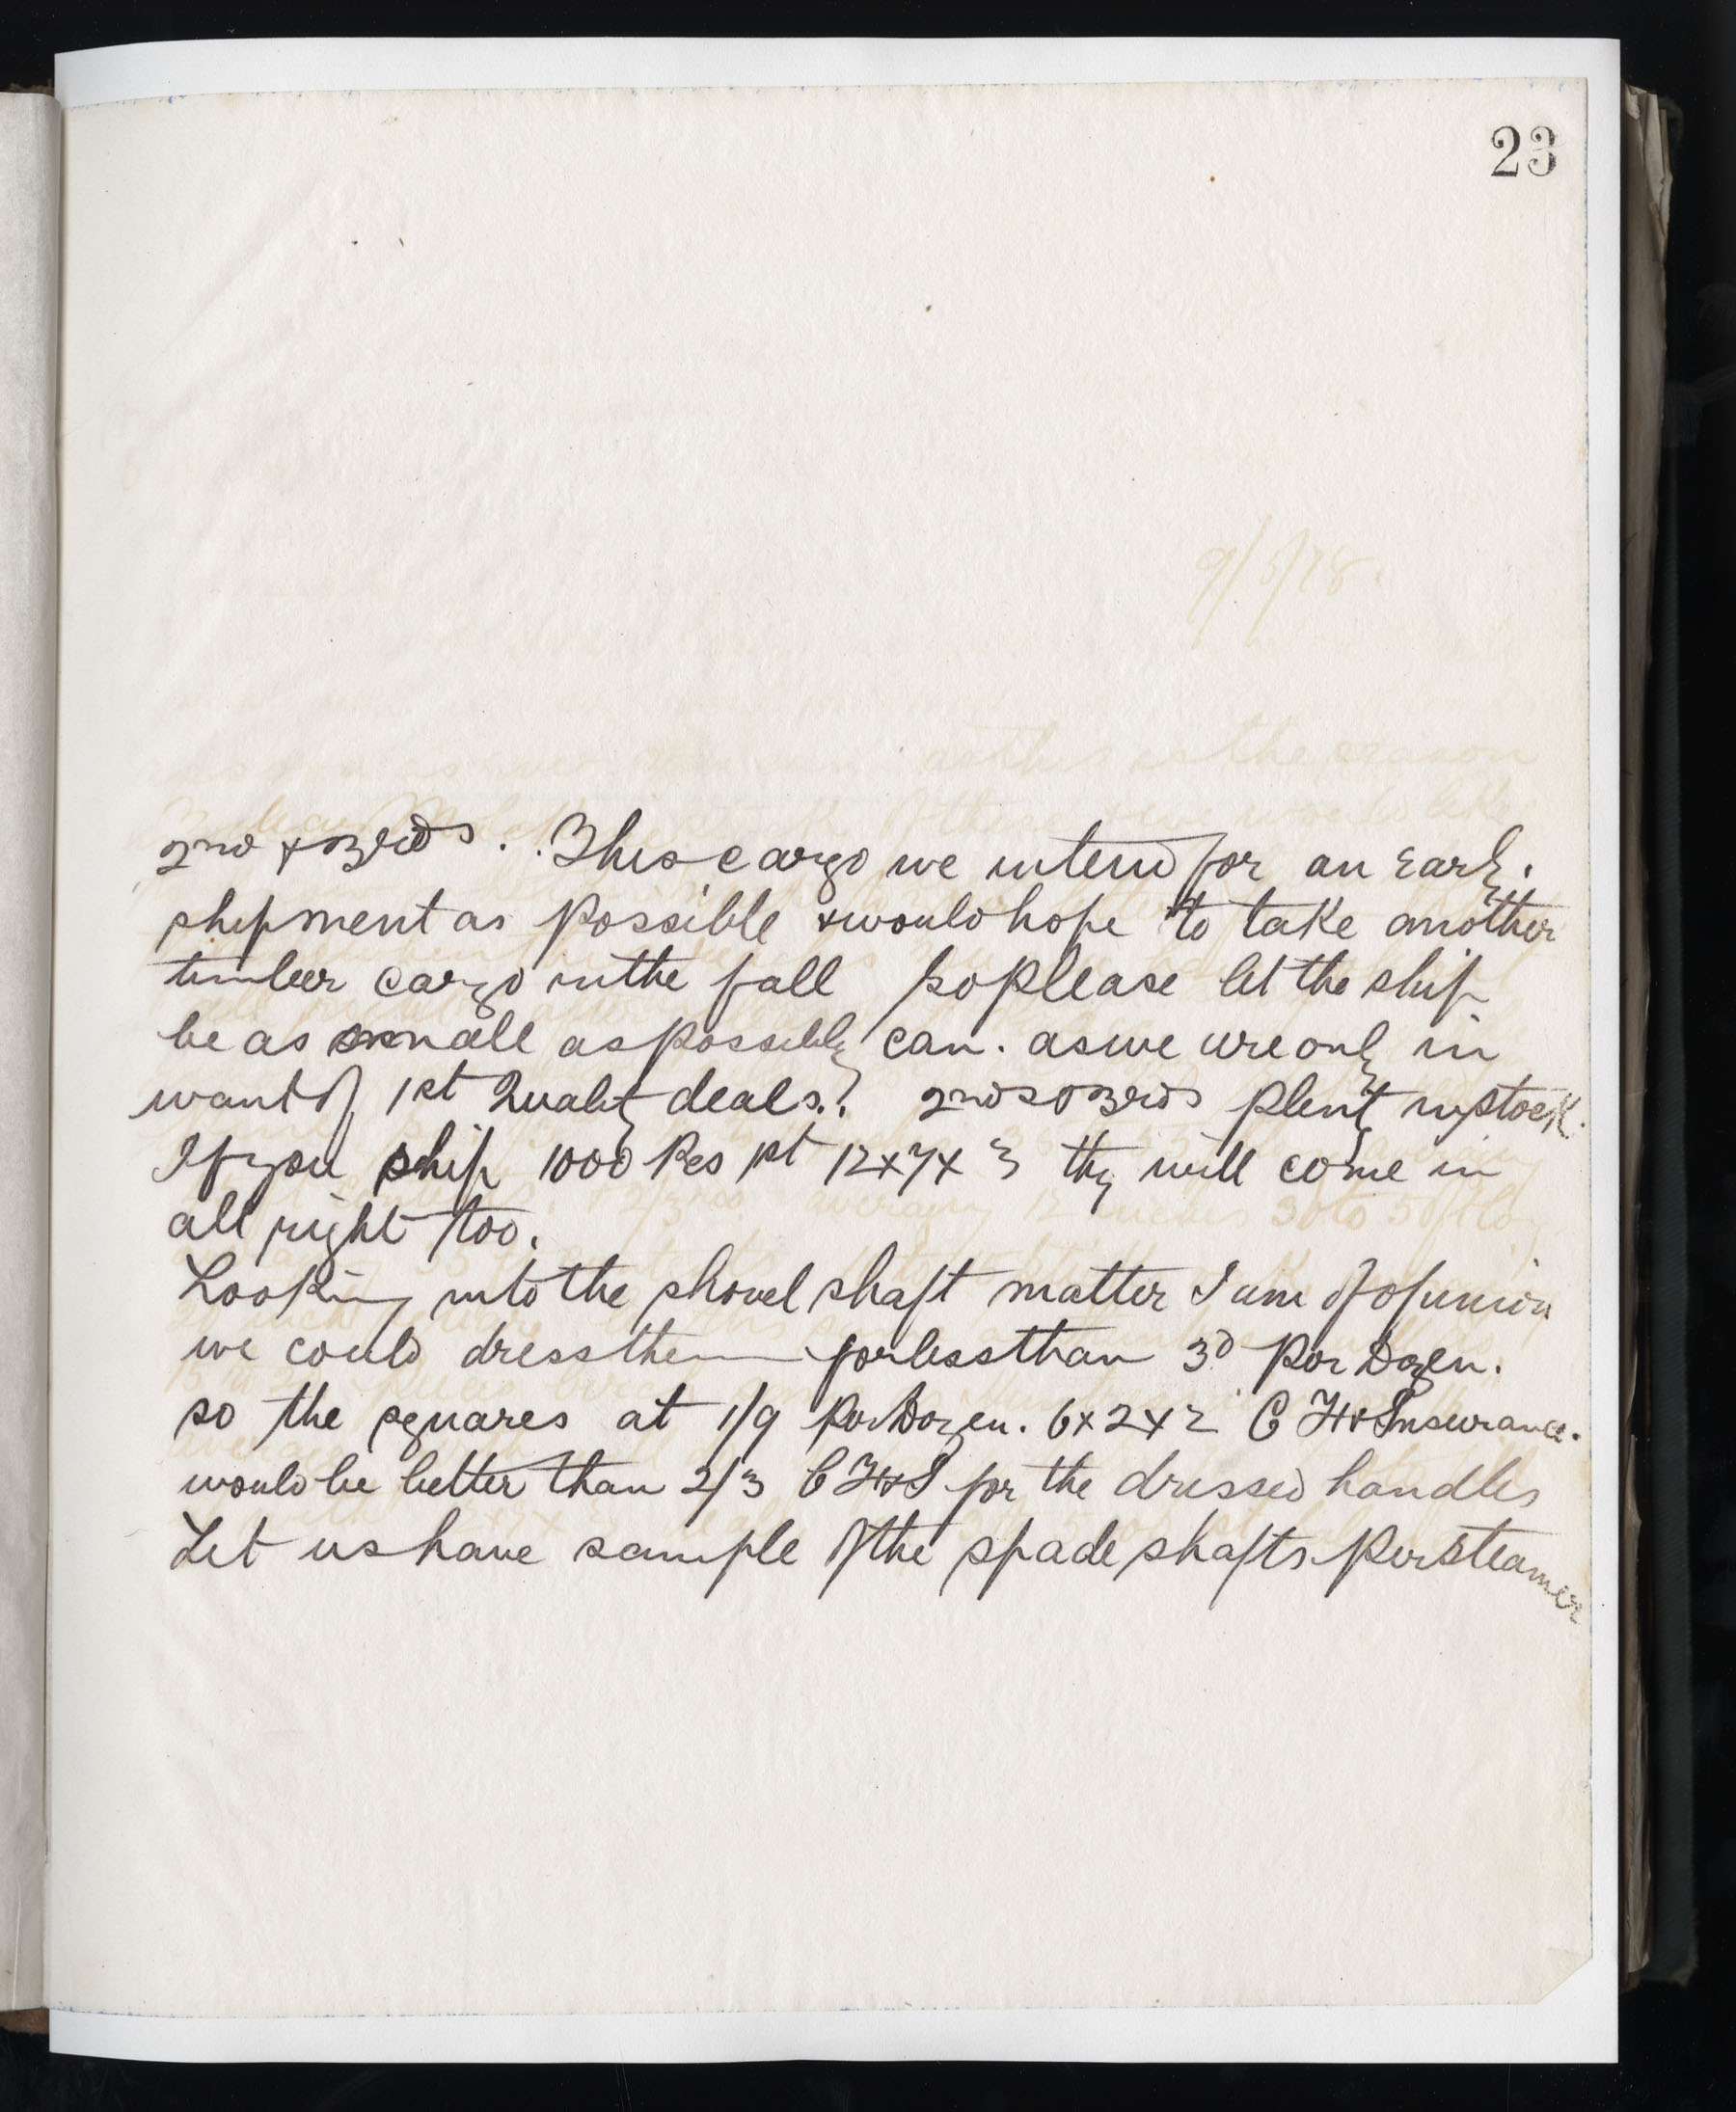 23
2nd & 3rds. This cargo we intend for an Early.
shipment as possible & would hope to take another
timber cargo in the fall so please let the ship
be as small as possibly can. as we are only in
want of 1st Quality deals. 2nds & 3rds plenty in stock.
If you ship 1000 Pcs 1st 12x7x3 they will come in
all right too.
Looking into the shovel shaft matter I am of opinion
we could dress them for less than 3d Per Dozen.
so the squares at 1/9 Per Dozen. 6x2x2 C F & Insurance.
would be better than 2/3 C F & I for the dressed handles
Let us have sample of the spade shafts Per Steamer